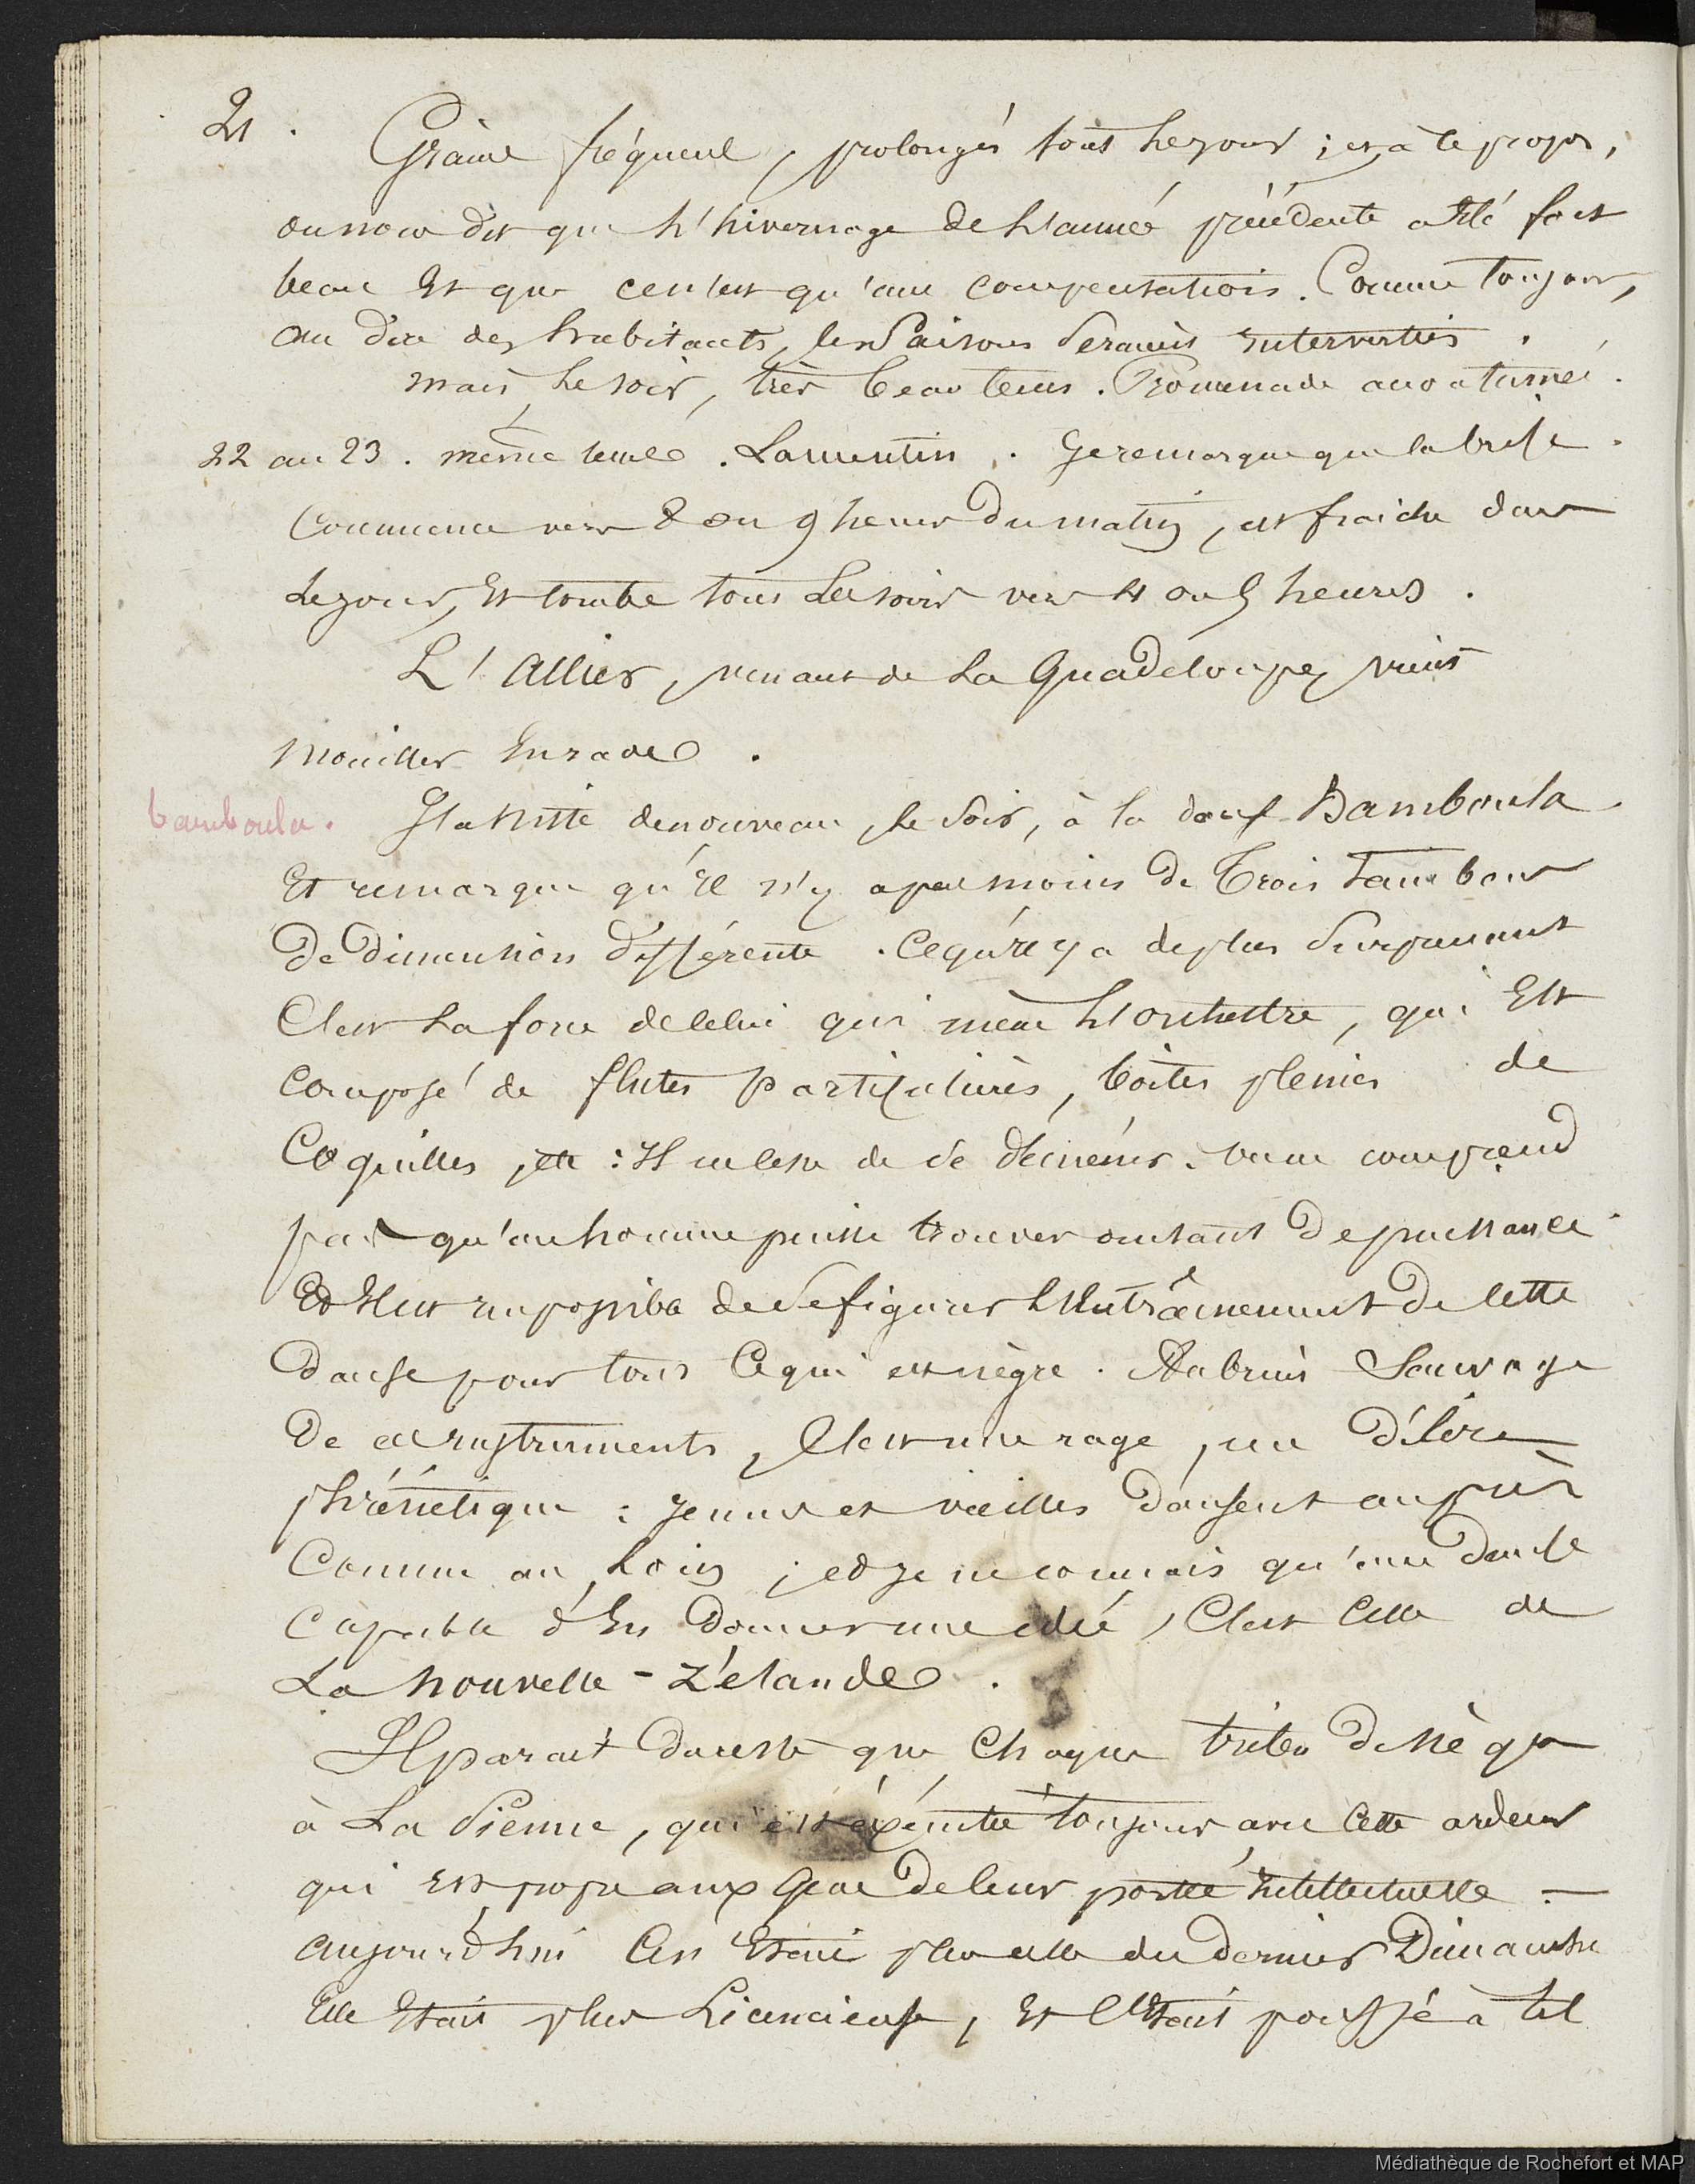 21.
Grains fréquens, prolongés tout le jour ; et, à ce propos,
on nous dit que l'hivernage de l'année précédente a été fort
beau et que ce n'est qu'une compensation. Comme toujours,
au dire des habitants, les Saisons seraient interverties.
mais, le soir, très beau tems. Promenade
22 au 23. même tems. Lamentin. Je remarque que la brise
commence vers 8 ou 9 heures du matin, est fraiche dans
le jour, et tombe tous les soirs vers 4 ou 5 heures.
L'Allier, venant de la Guadeloupe, vient
mouiller en rade.
bamboula.
J'assiste de nouveau, le soir, à la danse Bamboula
et remarque qu'il n'y a pas moins de trois tambours
de dimension différente. Ce qu'il y a de plus surprenant
c'est la force de celui qui mène l'orchestre, qui est
composé de flutes particulières, boites pleines de
coquilles, etc : Il ne cesse de se démener. on ne comprend
pas qu'un homme puisse trouver autant de puissance
Et il est impossible de se figurer l'entraînement de cette
danse pour tous ce qui est nègre. Au bruit Sauvage
de ces instruments, c'est une rage, un délire
phrénétique : jeunes et vieilles dansent auprès
comme au loin ; et je ne connais qu'une danse
capable d'en donner une idée, c'est celle de
la nouvelle-Zélande.
Il parait du reste que chaque tribu de nègres
à la sienne, qui est éxécutée toujours avec cette ardeur
qui est propre aux gens de leur portée intellectuelle. —
aujourd'hui ce n'était plus celle du dernier Dimanche
Elle était plus licencieuse, et c'était poussé à tel